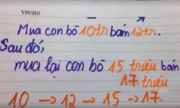 Mua con bò 10tr bán 12tr.
Sau đó,
mua lại con bò 15 triệu bán
17 triệu
10 → 12 → 15 → 17.